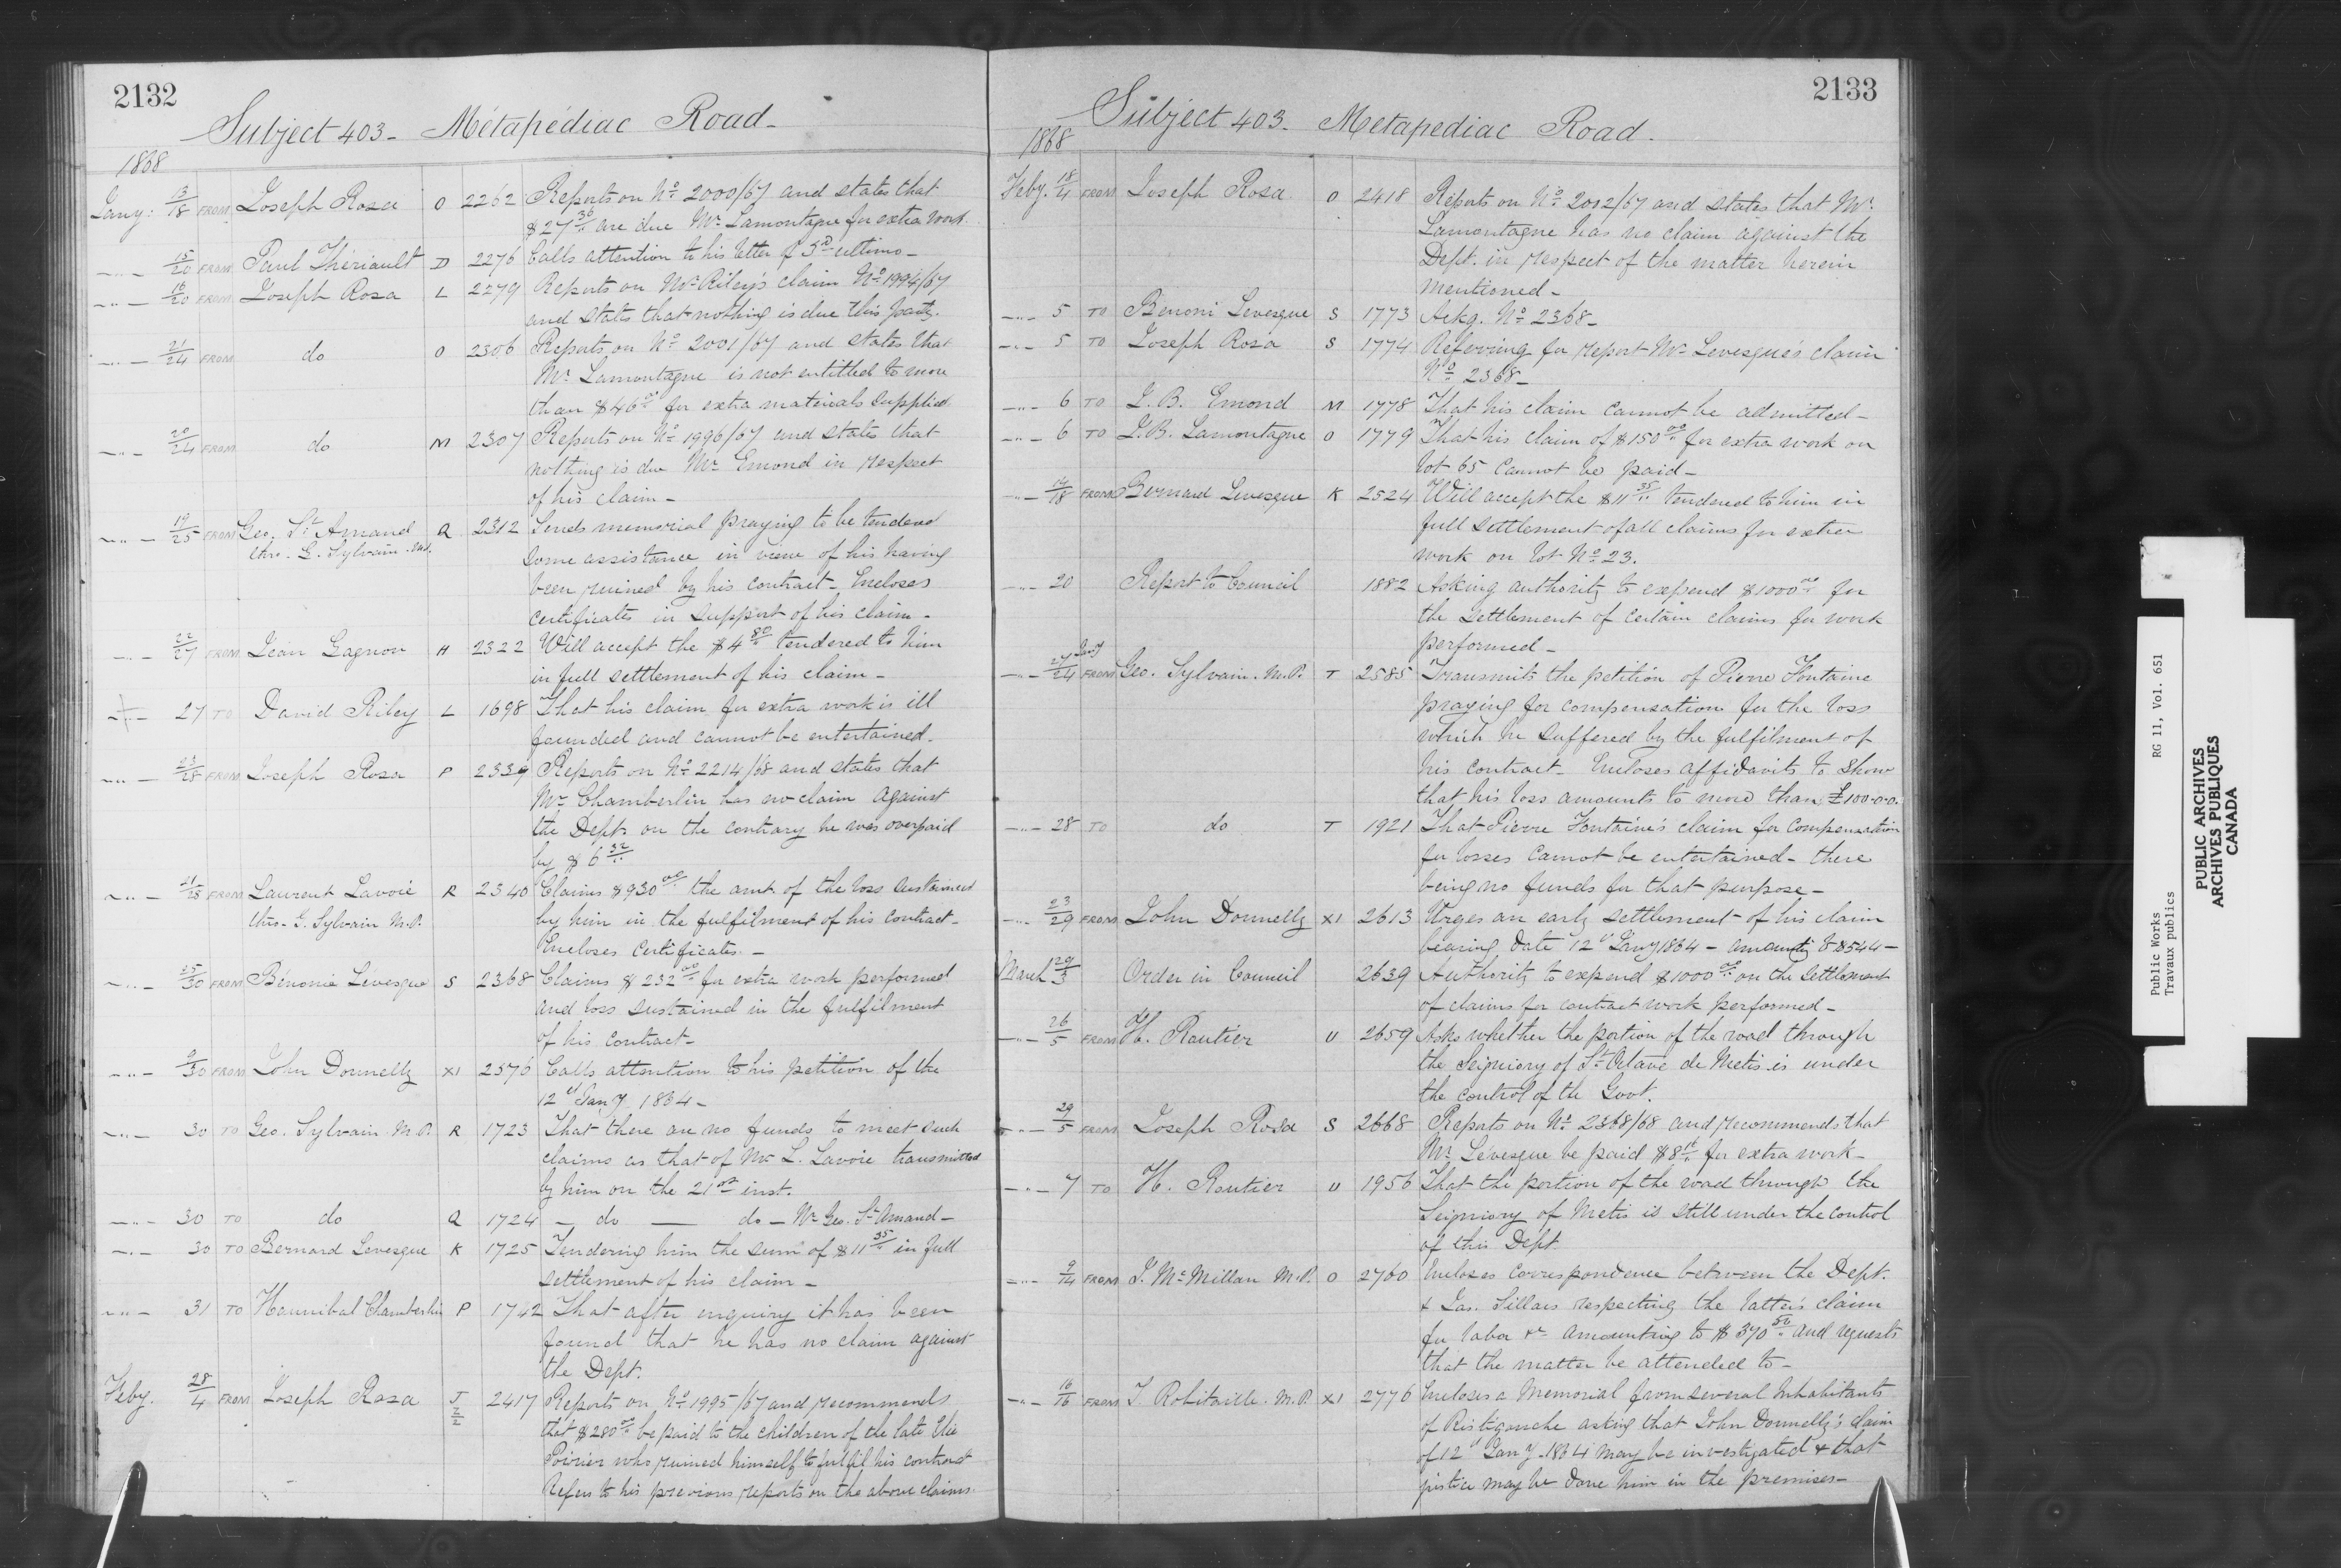 2132
Subject 403 - Métapédiac Road -
1868
Jany: 13/18 FROM Joseph Rosa O 2262 Reports on No. 2000/67 and states that
$27 36/.. are due Mr. Lamontagne for extra work.
-"- 15/20 FROM Paul Thériault D 2276 Calls attention to his letter of 3rd ultimo -
-"- 16/20 FROM Joseph Rosa L 2279 Reports on Mr. Riley's claim No. 1994/67
and states that nothing is due this party.
-"- 21/24 FROM do O 2306 Reports on No. 2001/67 and states that
Mr. Lamontagne is not entitled to more
than $46 00/.. for extra materials supplied
-"- 20/24 FROM do M 2307 Reports on No. 1996/67 and states that
nothing is due Mr. Emond in respect
of his claim -
-"- 19/25 FROM Geo. St. Amand Q 2312 Sends memorial praying to be tendered
thro. G. Sylvain. M.P. some assistance in view of his having
been ruined by his contract - Encloses
certificates in support of his claim -
-"- 22/27 FROM Jean Gagnon H 2322 Will accept the $4 80/.. tendered to him
in full settlement of his claim -
-"- 27 TO David Riley L 1698 That his claim for extra work is ill
founded and cannot be entertained.
-"- 23/28 FROM Joseph Rosa P 2339 Reports on No. 2214/68 and states that
Mr. Chamberlin has no claim against
the Dept. on the contrary he was overpaid
by $6 32/..
-"- 21/28 FROM Laurent Lavoie R 2340 Claims $930 00/.. the amt. of the loss sustained
thro. G. Sylvain M.P. by him in the fulfilment of his contract -
Encloses Certificates -
-"- 25/30 FROM Bénonie Lévesque S 2368 Claims $232 00/.. for extra work performed
and loss sustained in the fulfilment
of his contract -
-"- 9/30 FROM John Donnelly XI 2576 Calls attention to his petition of the
12th Jany 1864 -
-"- 30 TO Geo. Sylvain M.P. R 1723 That there are no funds to meet such
claims as that of Mr. L. Lavoie transmitted
by him on the 21st inst.
-"- 30 TO do Q 1724 - do - do - Mr. Geo. St. Amand -
-"- 30 TO Bernard Levesque K 1725 Tendering him the sum of $11 35/.. in full
settlement of his claim -
-"- 31 TO Hannibal Chamberlin P 1742 That after enquiry it has been
found that he has no claim against
the Dept.
Feby. 28/4 FROM Joseph Rosa J 2/2 2417 Reports on No. 1995/67 and recommends
that $280 00/.. be paid to the children of the late Elie
Poirier who ruined himself to fulfil his contract
Refers to his previous reports on the above claims.
2133
Subject 403 - Metapediac Road.
1868
Feby. 18/4 FROM Joseph Rosa O 2418 Reports on No. 2012/67 and states that Mr.
Lamontagne has no claim against the
Dept. in respect of the matter herein
mentioned -
-"- 5 TO Benoni Levesque S 1773 Ackg. No. 2368 -
-"- 5 TO Joseph Rosa S 1774 Referring for report Mr. Levesque's claim
No. 2368 -
-"- 6 TO J.B. Emond M 1778 That his claim cannot be admitted -
-"- 6 TO J.B. Lamontagne O 1779 That his claim of $150 00/.. for extra work on
lot 65 cannot be paid -
-"- 14/18 FROM Bernard Levesque K 2524 Will accept the $11 35/.. tendered to him in
full settlement of all claims for extra
work on lot No. 23.
-"- 20 Report to Council 1882 Asking authority to expend $1000 00/.. for
the settlement of certain claims for work
performed -
-"- 27 Jany/24 FROM Geo. Sylvain. M.P. T 2585 Transmits the petition of Pierre Fontaine
praying for compensation for the loss
which he suffered by the fulfilment of
his contract - Encloses affidavits to show
that his loss amounts to more than £100-0-0.
-"- 28 TO do T 1921 That Pierre Fontaine's claim for compensation
for losses cannot be entertained - there
being no funds for that purpose -
-"- 23/29 FROM John Donnelly XI 2613 Urges an early settlement of his claim
bearing date 12th Jany 1864 - amountg to $544 -
March 29/3 Order in Council 2639 Authority to expend $1000 00/.. on the settlement
of claims for contract work performed -
-"- 26/5 FROM H. Routier U 2659 Asks whether the portion of the road through
the Seigniory of St. Octave de Metis is under
the control of the Govt.
-"- 29/5 FROM Joseph Rosa S 2668 Reports on No. 2368/68 and recommends that
Mr. Levesque be paid $8 16/.. for extra work -
-"- 7 TO H. Routier U 1956 That the portion of the road through the
Seigniory of Metis is still under the control
of this Dept.
-"- 9/14 FROM J. McMillan M.P. O 2760 Encloses correspondence between the Dept.
& Jas. Sillars respecting the latter's claim
for labor &c. amounting to $370 50/.. and requests
that the matter be attended to -
-"- 16/16 FROM T. Robitaille. M.P. XI 2776 Encloses a Memorial from several inhabitants
of Ristigouche asking that John Donnelly's claim
of 12th Jany 1864 may be investigated & that
justice may be done him in the premises -
Public Works RG 11, Vol. 651
Travaux publics
PUBLIC ARCHIVES
ARCHIVES PUBLIQUES
CANADA